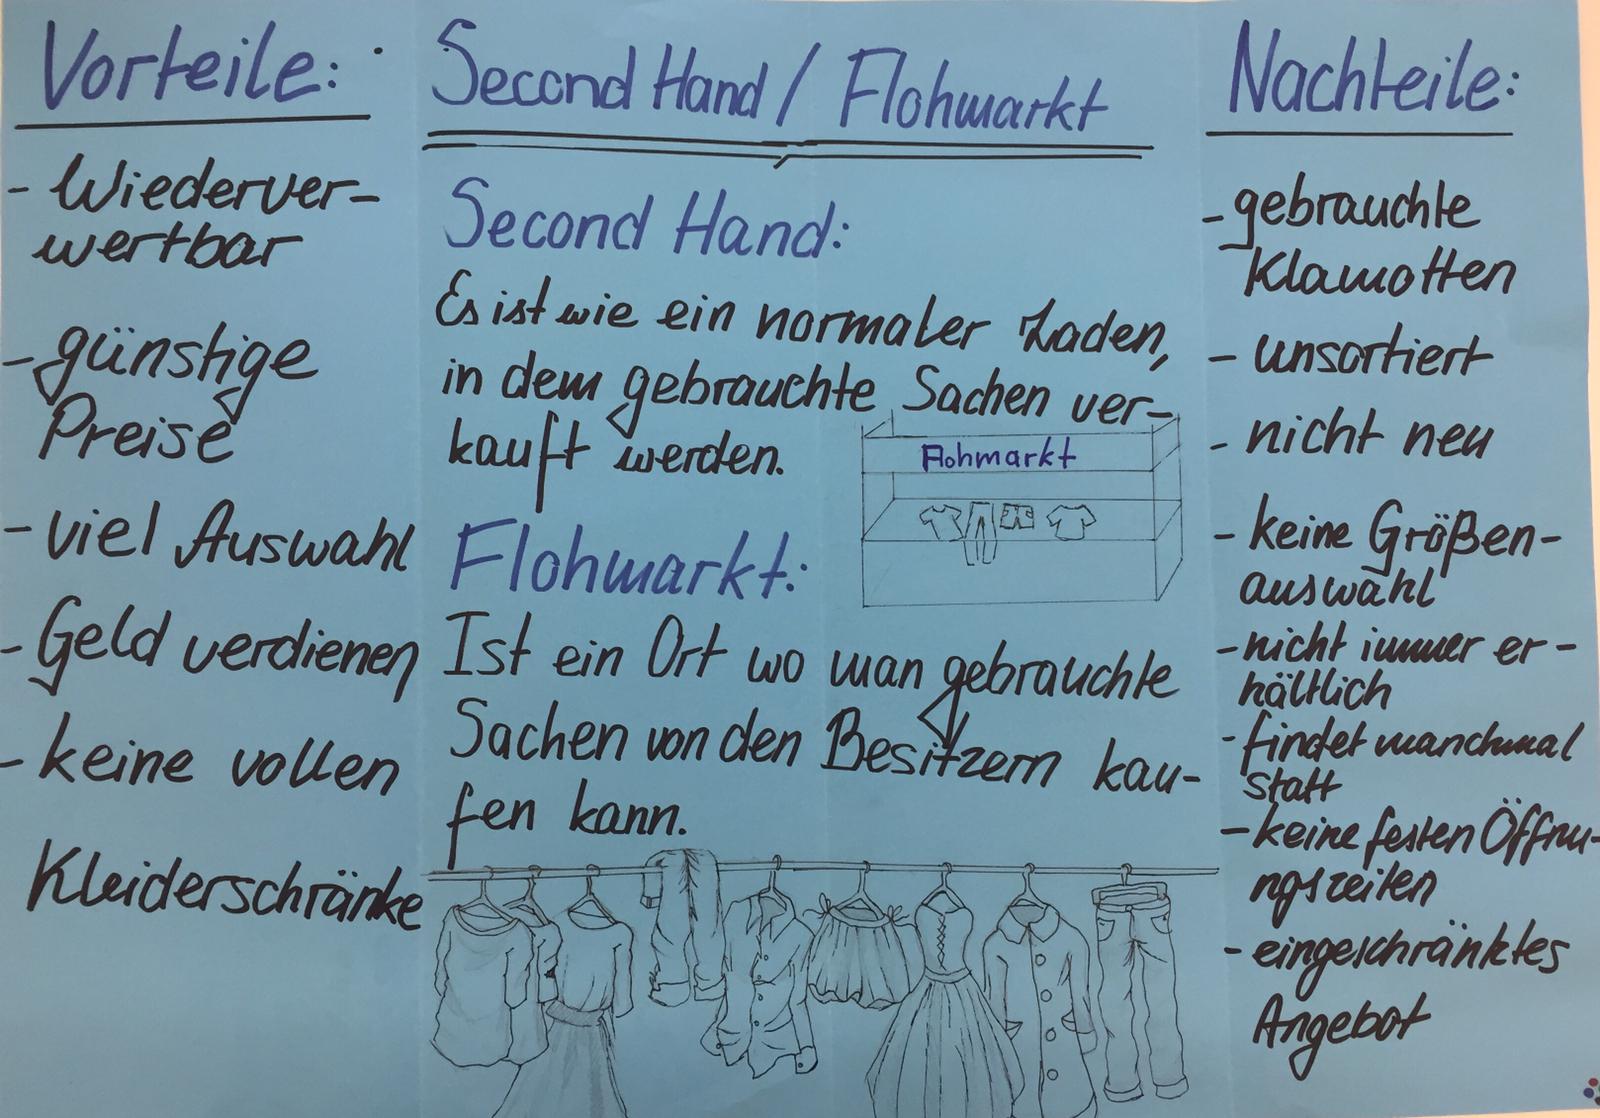 Vorteile:
- Wiederver-
wertbar
- günstige
Preise
- viel Auswahl
- Geld verdienen
- keine vollen
Kleiderschränke
Second Hand / Flohmarkt
Second Hand:
Es ist wie ein normaler Laden,
in dem gebrauchte Sachen ver-
kauft werden.
Flohmarkt
Flohmarkt:
Ist ein Ort wo man gebrauchte
Sachen von den Besitzern kau-
fen kann.
Nachteile:
- gebrauchte
Klamotten
- unsortiert
- nicht neu
- keine Größen-
auswahl
- nicht immer er-
hältlich
- findet manchmal
statt
- keine festen Öffnu-
ngszeiten
- eingeschränktes
Angebot